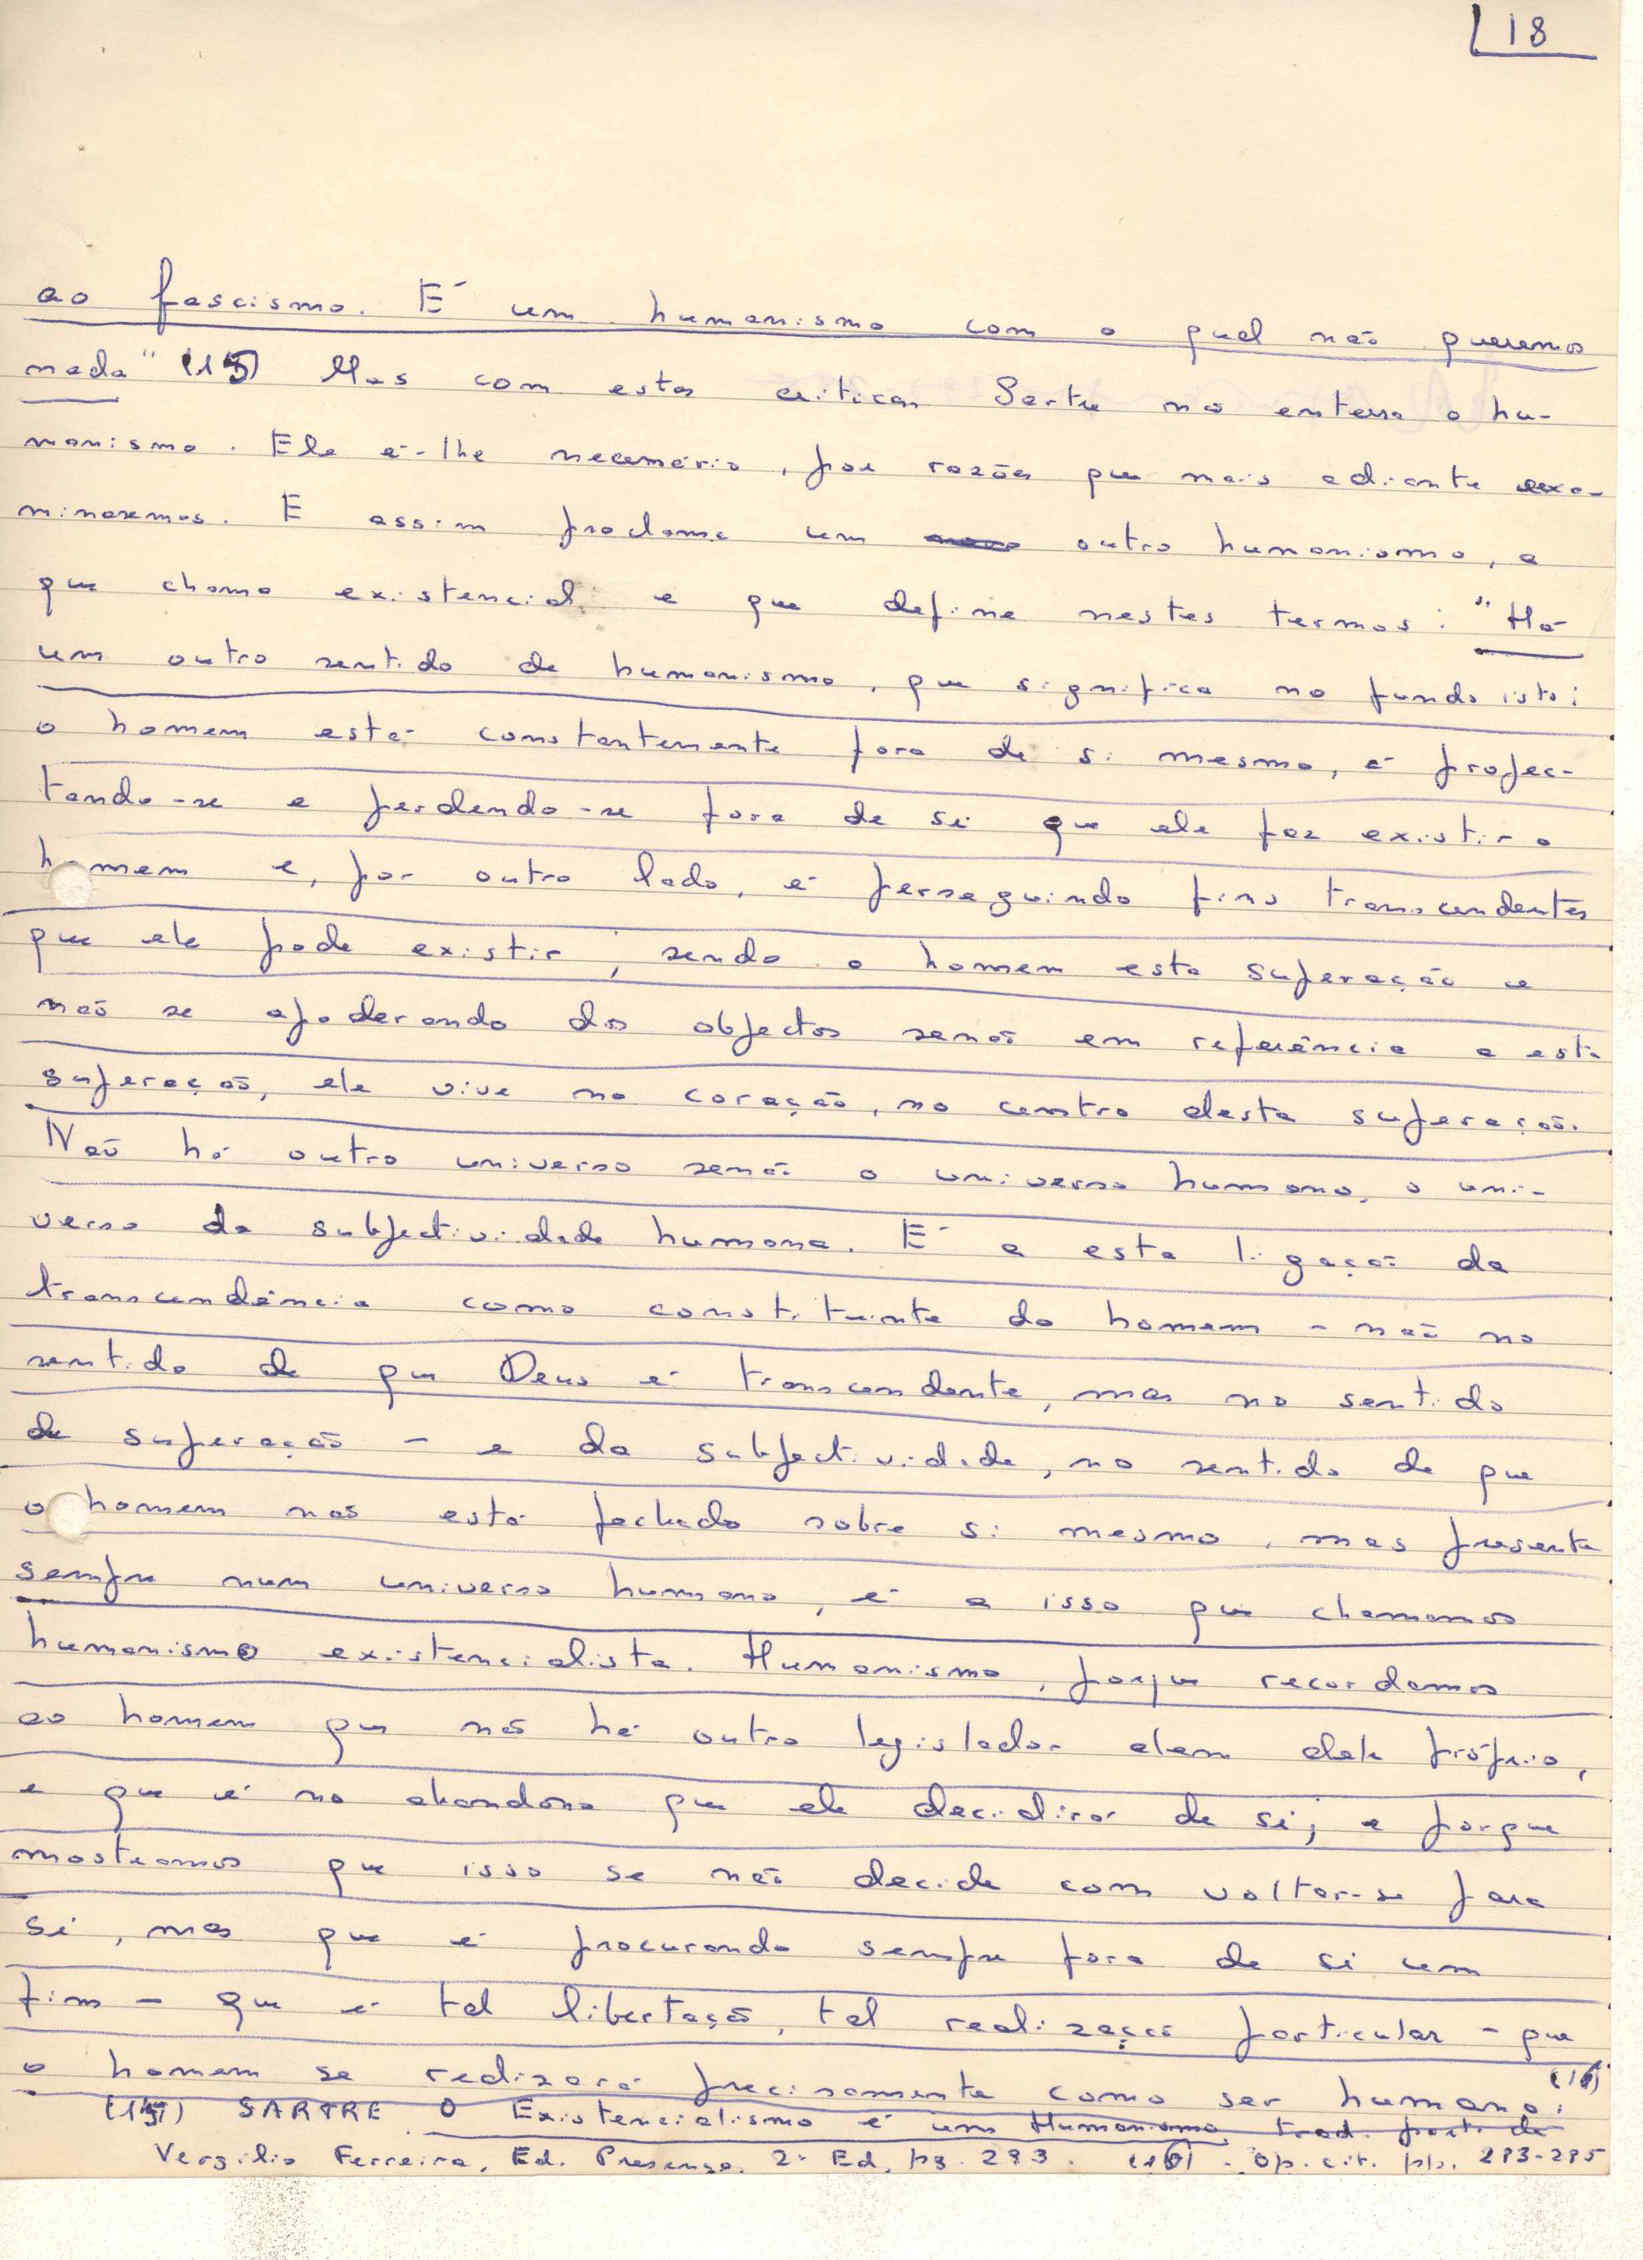 18
ao fascismo. É um humanismo com o qual não queremos
nada" (15) Mas com esta crítica, Sartre não enterra o hu-
manismo. Ele é-lhe necessário, por razões que mais adiante exa-
minaremos. E assim proclama um outro humanismo, a
que chama existencial e que define nestes termos: "Há
um outro sentido de humanismo, que significa no fundo isto:
o homem está constantemente fora de si mesmo, é projec-
tando-se e perdendo-se fora de si que ele faz existir o
homem e, por outro lado, é perseguindo fins transcendentes
que ele pode existir; sendo o homem esta superação e
não se apoderando dos objectos senão em referência a esta
superação, ele vive no coração, no centro desta superação.
Não há outro universo senão o universo humano, o uni-
verso da subjectividade humana. É a esta ligação da
transcendência como constituinte do homem - não no
sentido de que Deus é transcendente, mas no sentido
de superação - e da subjectividade, no sentido de que
o homem não está fechado sobre si mesmo, mas presente
sempre num universo humano, é a isso que chamamos
humanismo existencialista. Humanismo, porque recordamos
ao homem que não há outro legislador alem dele próprio,
e que é no abandono que ele decidirá de si; e porque
mostramos que isso se não decide com voltar-se para
si, mas que é procurando sempre fora de si um
fim - que é tal libertação, tal realização particular - que
o homem se realizará precisamente como ser humano. (16)
(15) SARTRE O Existencialismo é um Humanismo, trad. port. de
Vergílio Ferreira, Ed. Presença, 2ª Ed, pg. 293. (16) - Op. cit. pp. 293-295